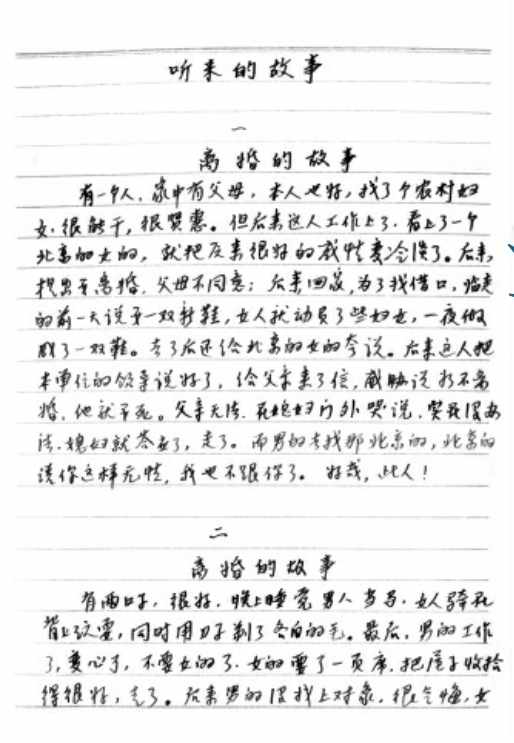 听来的故事
一
离婚的故事
有一个人，家中有父母，本人也好，找了个农村妇
女，很能干，很贤惠。但后来这人工作上了，看上了一个
北京的女的，就把原来很好的感情变冷淡了。后来，
提出要离婚，父母不同意；后来回家，为了找借口，临走
的前一天说要一双新鞋，女人就动员了些妇女，一夜做
成了一双鞋。去了后还给北京的女的夸说。后来这人把
本单位的领导说好了，给父亲来了信，威胁说如不离
婚，他就不死。父亲无法，在媳妇门外哭说，实在没办
法，媳妇就答应了，走了。而男的去找那北京的，北京的
说你这样无情，我也不跟你了。好哉，此人！
二
离婚的故事
有两口子，很好，晚上睡觉男人当马，女人骑在
背上玩耍，同时用刀子剃了各自的毛。最后，男的工作
了，变心了，不要女的了，女的要了一页席，把房子收拾
得很好，走了。后来男的没找上对象，很后悔，女